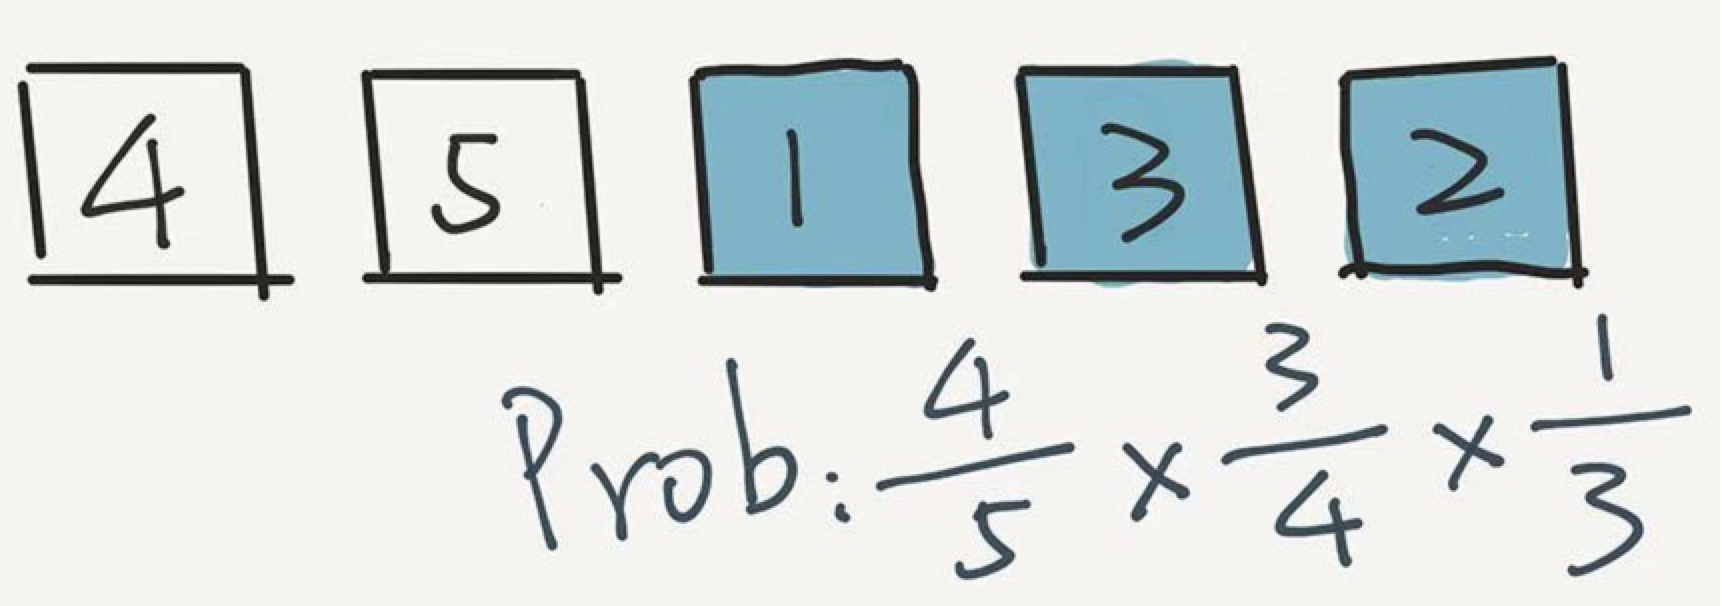 4 5 1 3 2
Prob: 4/5 × 3/4 × 1/3